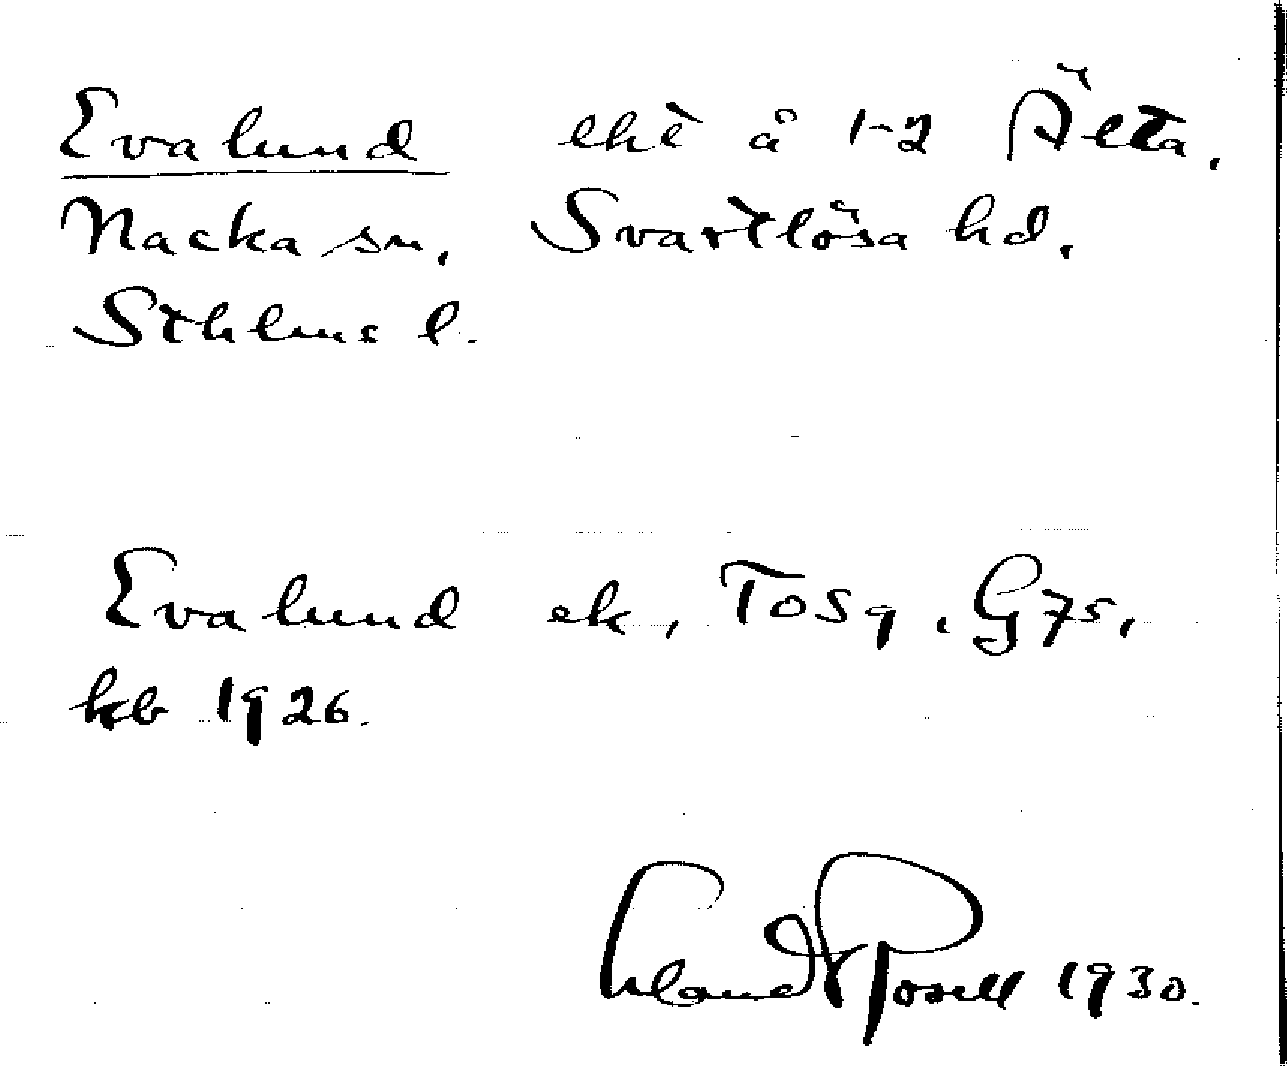 Evalund eht å 1-2 Älta.
Nacka sn. Svartlösa hd.
Sthlms l.
Evalund ek, Tosq. G7s,
hcb 1926.
Erland Rosell 1930.